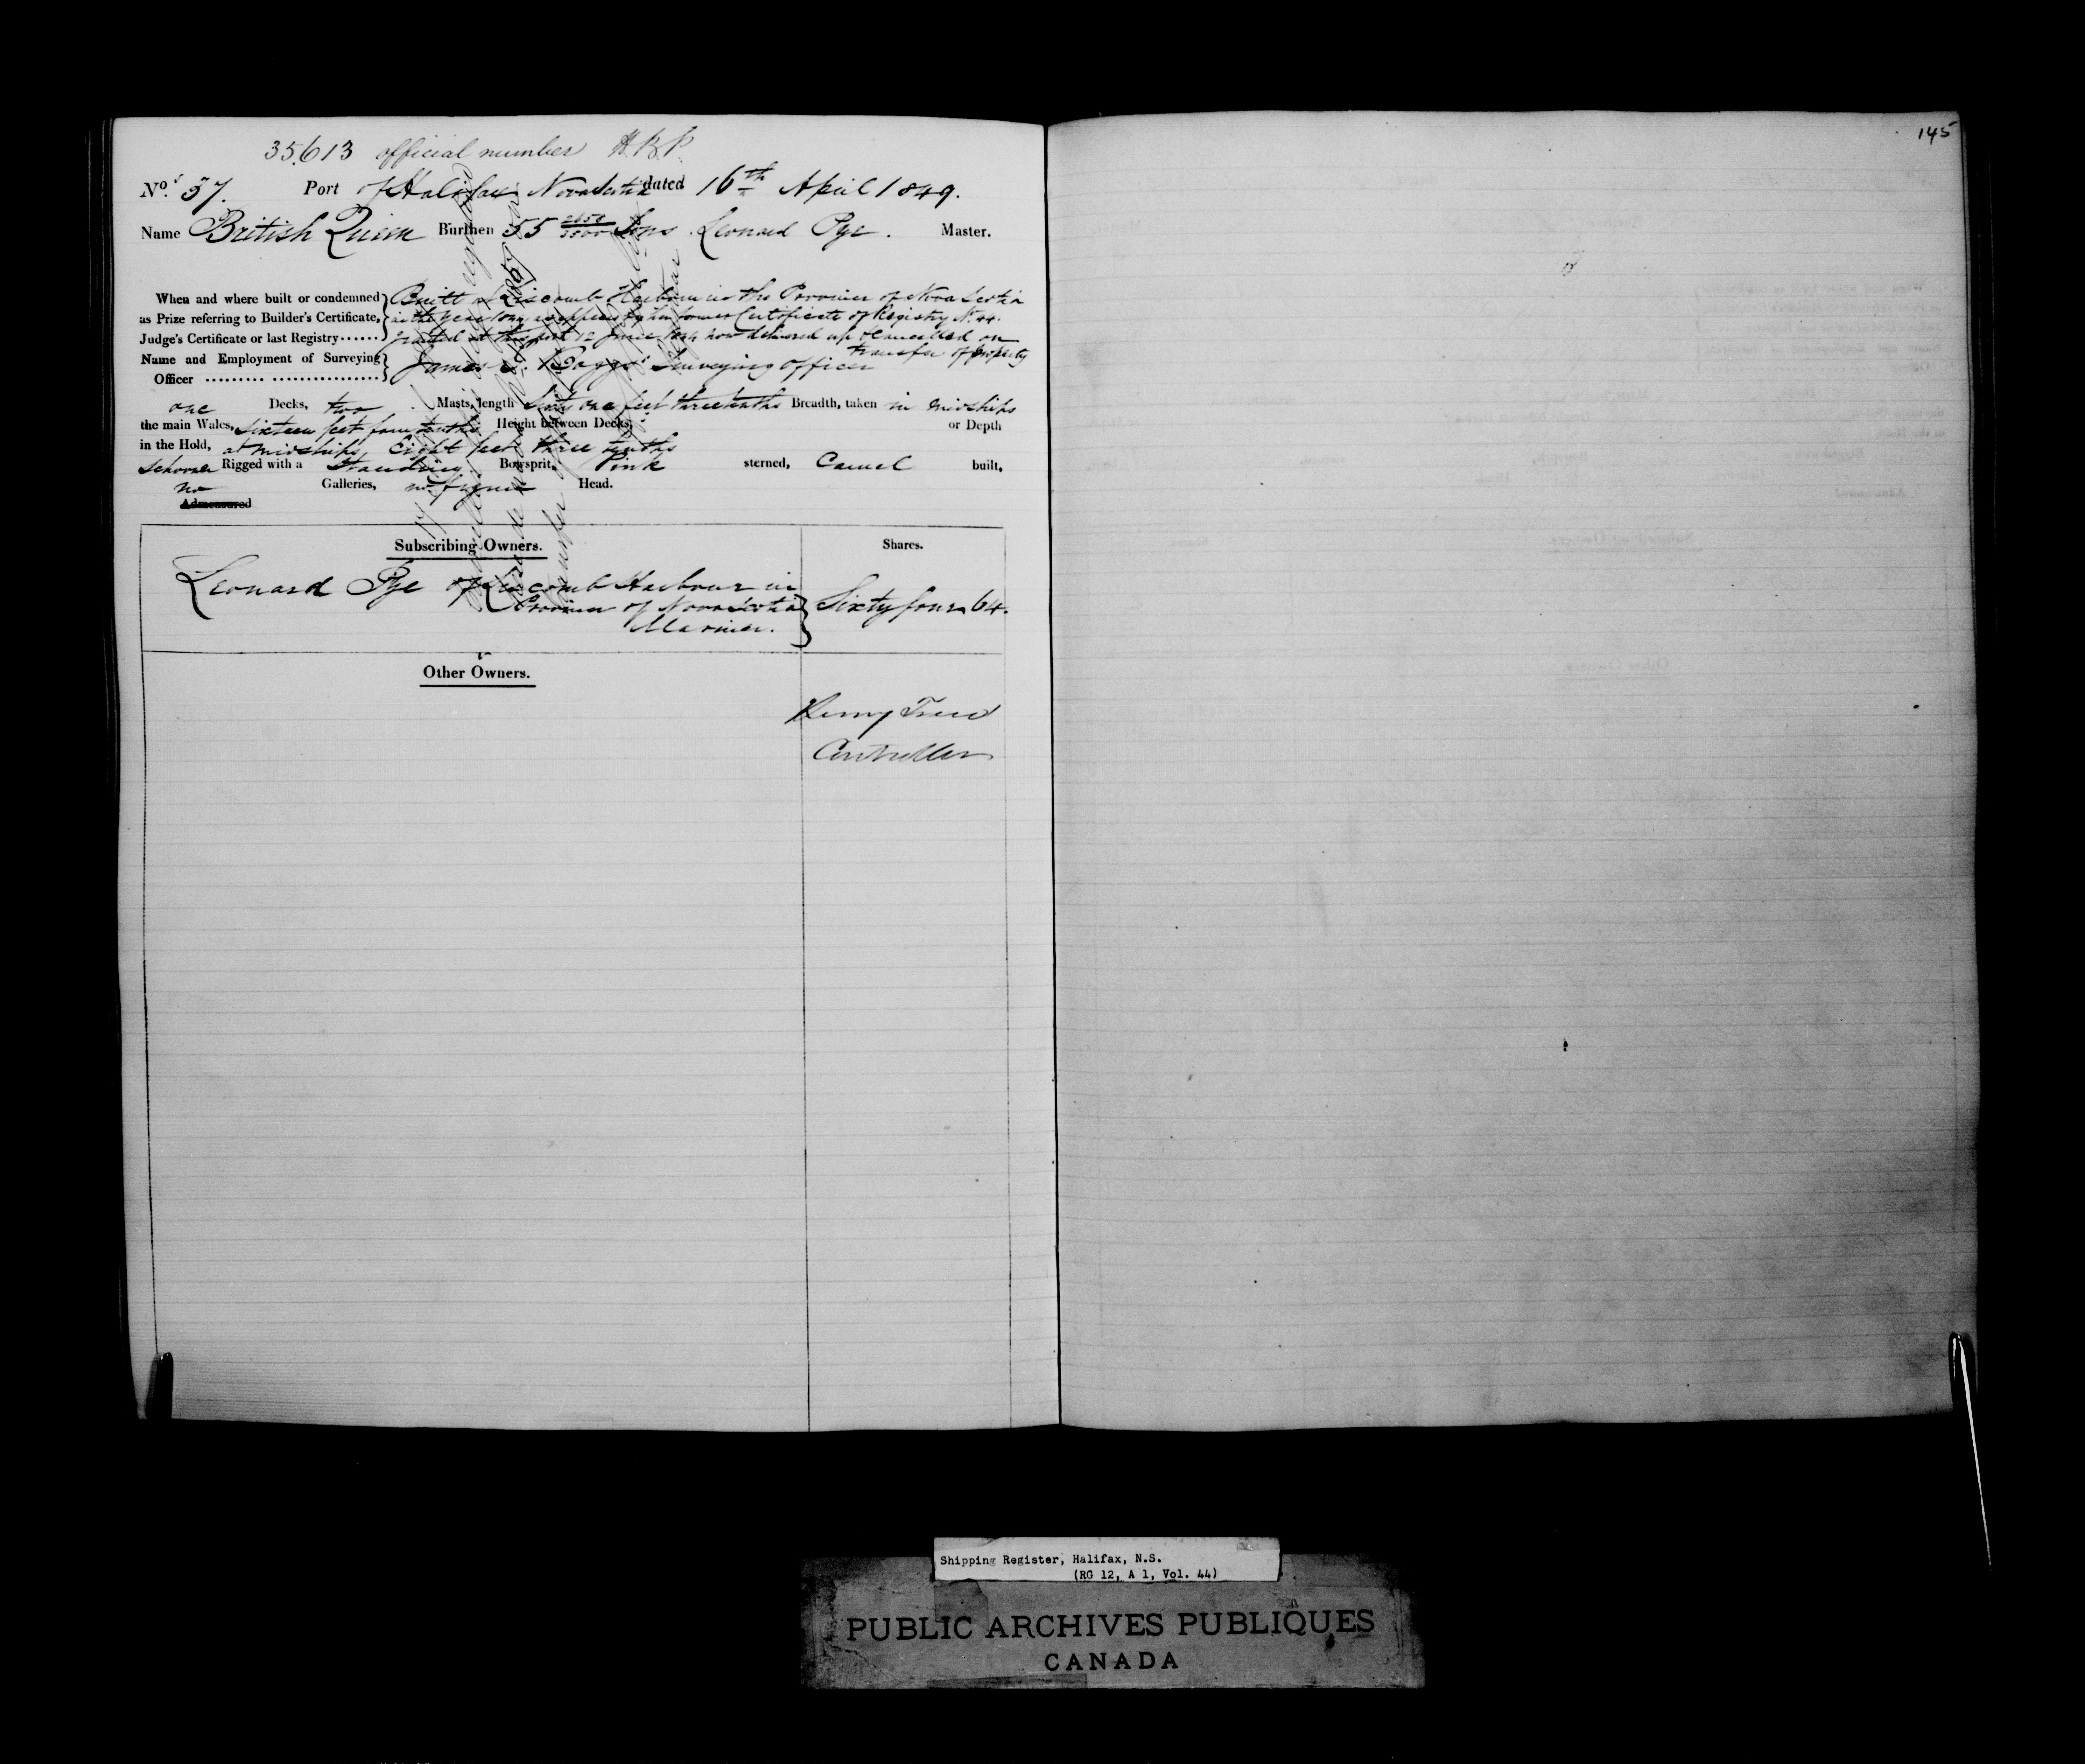 35.613 official number H.B.P.
No. 37. Port of Halifax Nova Scotia dated 16th April 1849.
Name British Queen Burthen 55 2658/3500 Tons Leonard Pye. Master.
When and where built or condemned as Prize referring to Builder's Certificate, Judge's Certificate or last Registry ......
Built at Liscomb Harbour in the Province of Nova Scotia
in the year 1844 as appears by her former Certificate of Registry No. 44.
granted at this port 12 June 1844 now delivered up & cancelled on
transfer of property
Name and Employment of Surveying Officer ......... ................
James Baggs Surveying officer
one Decks, two Masts, length Sixty one feet three tenths Breadth, taken in midships
the main Wales, Sixteen feet four tenths Height between Decks, or Depth
in the Hold, at midships, Eight feet three tenths
Schooner Rigged with a Standing Bowsprit, Pink sterned, Carvel built,
no Galleries, no figure Head.
Admeasured
Subscribing Owners. Shares.
Leonard Pye of Liscomb Harbour in
Province of Nova Scotia
Mariner.
Sixty four 64.
Other Owners.
Controller
145
Shipping Register, Halifax, N.S.
(RG 12, A 1, Vol. 44)
PUBLIC ARCHIVES PUBLIQUES
CANADA